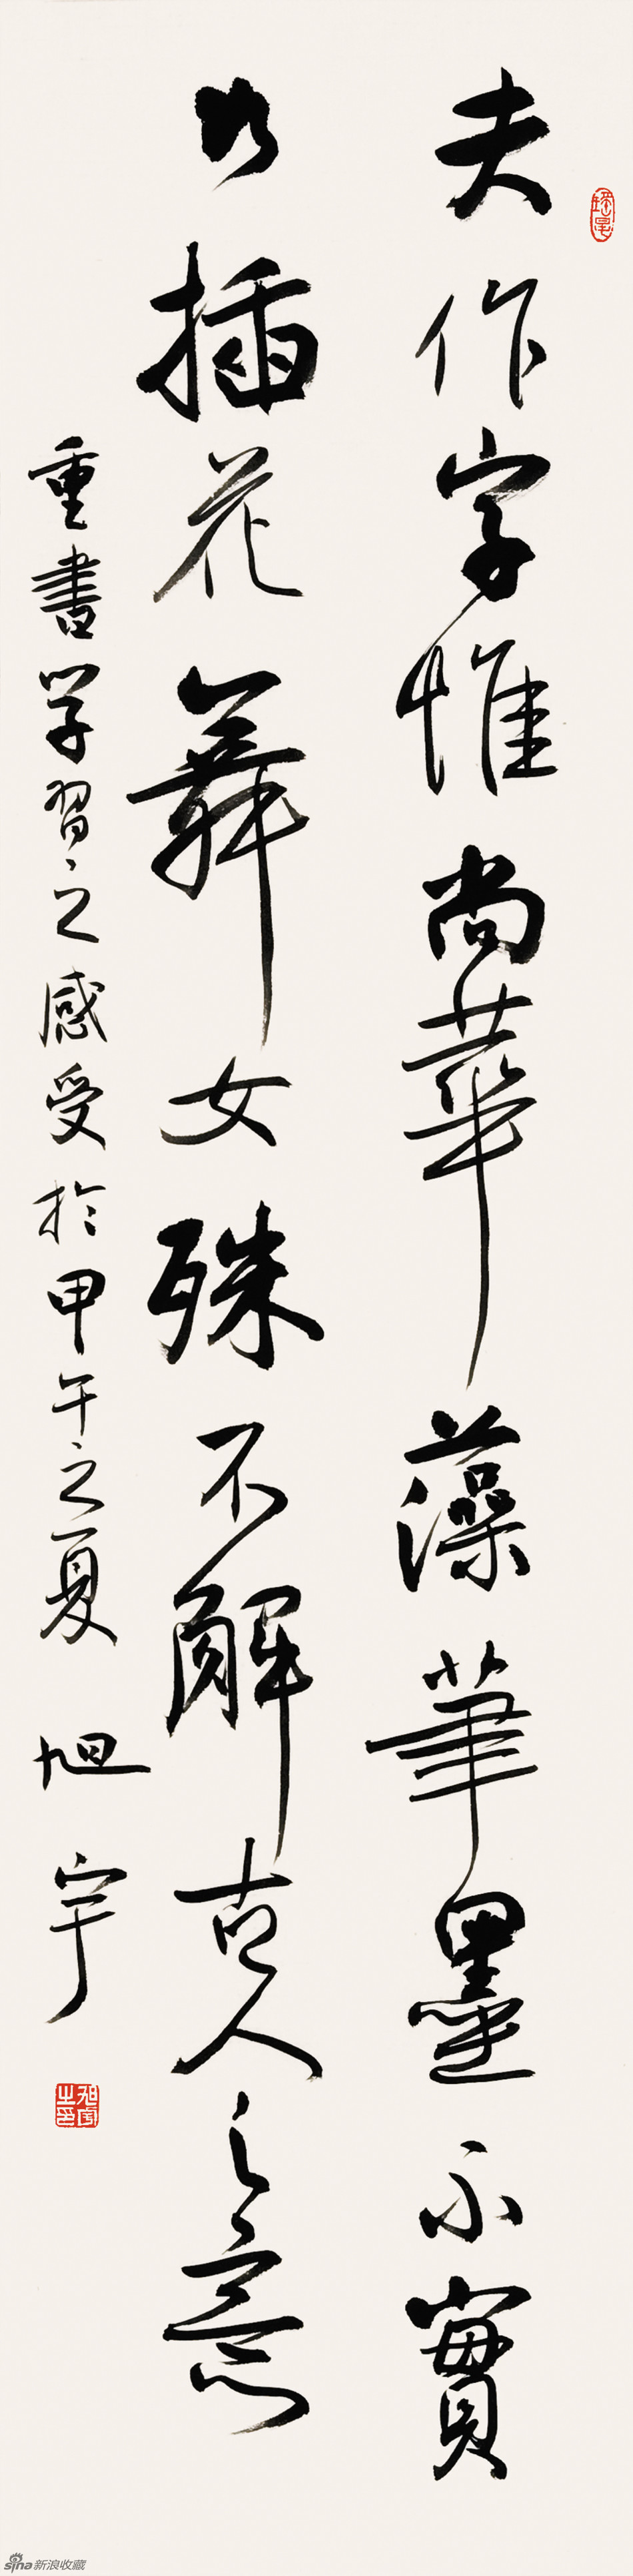 夫作字惟尚華藻筆墨不實
如插花舞女殊不解古人之意
重書学習之感受於甲午之夏
旭宇
旭宇之印
sina新浪收藏